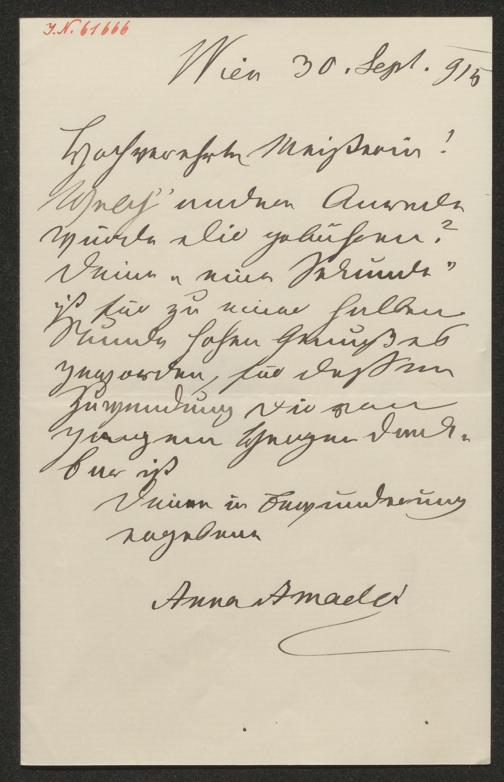 I.N. 61666
Wien 30. Sept. 915
Hochverehrte Meisterin!
Welch' andere Anrede
würde Dir gebühren?
Deine „eine Sekunde"
ist für zu einer halben
Stunde hohen Genußes
geworden, für dessen
Zuwendung Dir von
ganzem Herzen dank-
bar ist
Deine in Bewunderung
ergebene
Anna Amadei